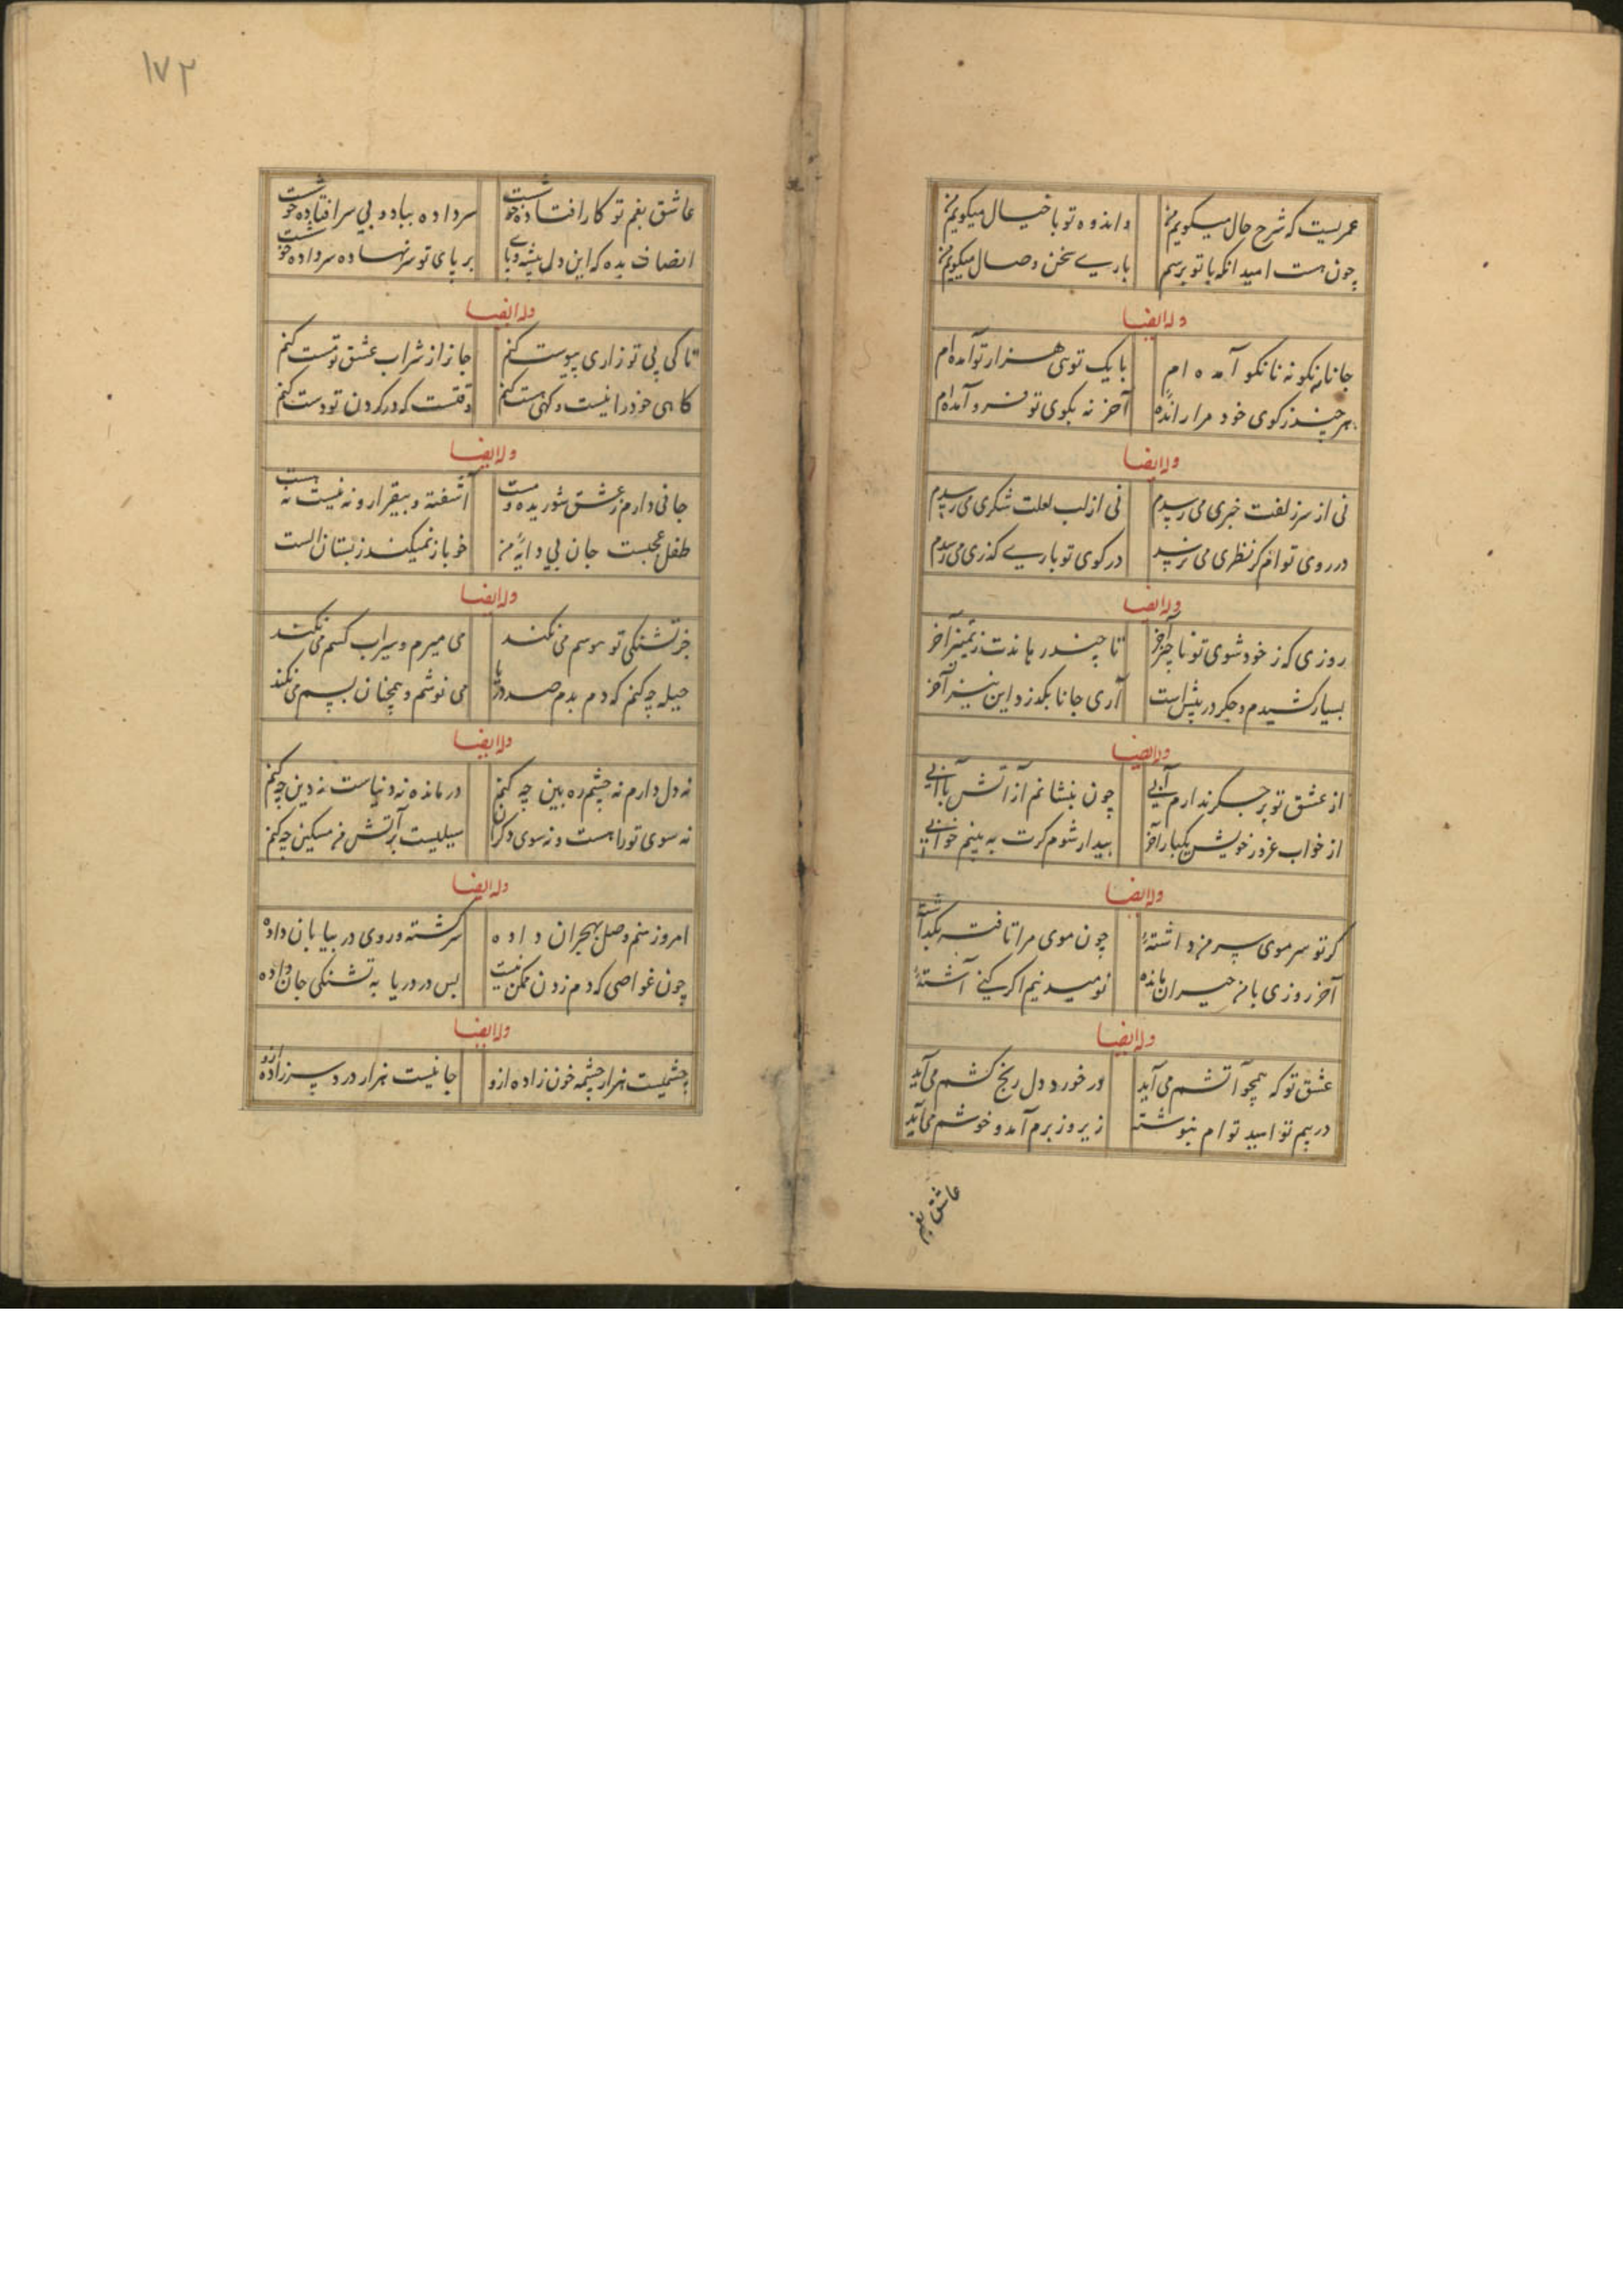 عمریست که شرح حال میکویم من
واندوه تو با خیال میکویم من
چون هست امید انکه با تو برسم
باری سخن وصال میکویم من
وله ایضا
جانا نه نکو نه نانکو آمده ام
با یک توسی هزار تو آمده ام
هر چند ز کوی خود مرا رانده
آخر نه بکوی تو فرو آمده ام
وله ایضا
نی از سر زلفت خبری می رسدم
نی از لب لعلت شکری می رسدم
در روی توام کر نظری می نرسد
در کوی تو باری کذری می رسدم
وله ایضا
روزی که ز خود شوی تو ناچیز آخر
تا چند رهاندت ز تمییز آخر
بسیار کشیدم و جکر در پیش است
آری جانا بکذرد این نیز آخر
وله ایضا
از عشق تو بر جکر ندارم آبی
چون بنشانم آز آتش
از خواب غرور خویش یکبار آخر
بیدار شوم کرت به بینم خوابی
وله ایضا
کر تو سر موی سر من داشتهٔ
چون موی مرا تافته بکداشتهٔ
آخر روزی با من حیران مانده
نومید نیم اکر کنی آشتهٔ
وله ایضا
عشق تو که همچو آتشم می آید
در خورد دل رنج کشم می آید
در بیم تو امید توام ننوشته
زیر و زبرم آمد و خوشم می آید
عاشق بغم
۱۷۲
عاشق بغم تو کار افتاده خوشست
سر داده بباد و بی سر افتاده خوشست
انصاف بده که این دل
بر پای تو سر نهاده سر داده خوشست
وله ایضا
تا کی پی تو زاری پیوست کنم
جانرا ز شراب عشق تو مست کنم
کاهی خود را نیست و کهی هست کنم
وقتست که در کردن تو دست کنم
وله ایضا
جانی دارم ز عشق شوریده و مست
آشفته و بیقرار و نه نیست نه هست
طفل عجبست جان بی دایهٔ من
خو باز نمیکند ز بستان الست
وله ایضا
جز تشنکی تو هوسم می نکند
می میرم و سیراب کسم می نکند
حیله چه کنم که دم بدم صد دریا
می نوشم و همچنان بسم می نکند
وله ایضا
نه دل دارم نه چشم ره بین چه کنم
درمانده نه دنیاست نه دین چه کنم
نه سوی تو راهست و نه سوی دکران
سیلیست بر آتش من مسکین چه کنم
وله ایضا
امروز منم وصل بهجران داده
سرکشته و روی در بیابان داده
چون غواصی که دم زدن ممکن نیست
بس در دریا به تشنکی جان داده
وله ایضا
چشمیست هزار چشمه خون زاده ازو
جانیست هزار درد سر زاده ازو